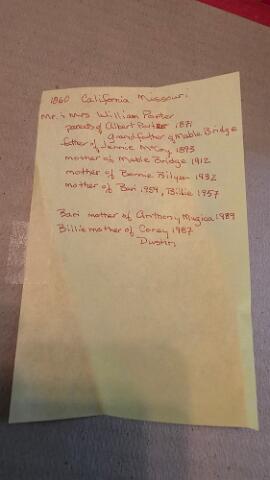 1860 California Missouri
Mr. & Mrs William Porter
parents of Albert Porter 1871
grandfather of Mable Bridge
father of Jennie McCoy 1893
mother of Mable Bridge 1912
mother of Bonnie Bilyeu 1932
mother of Bari 1954, Billie 1957
Bari mother of Anthony Mugica 1989
Billie mother of Corey 1987
Dustin